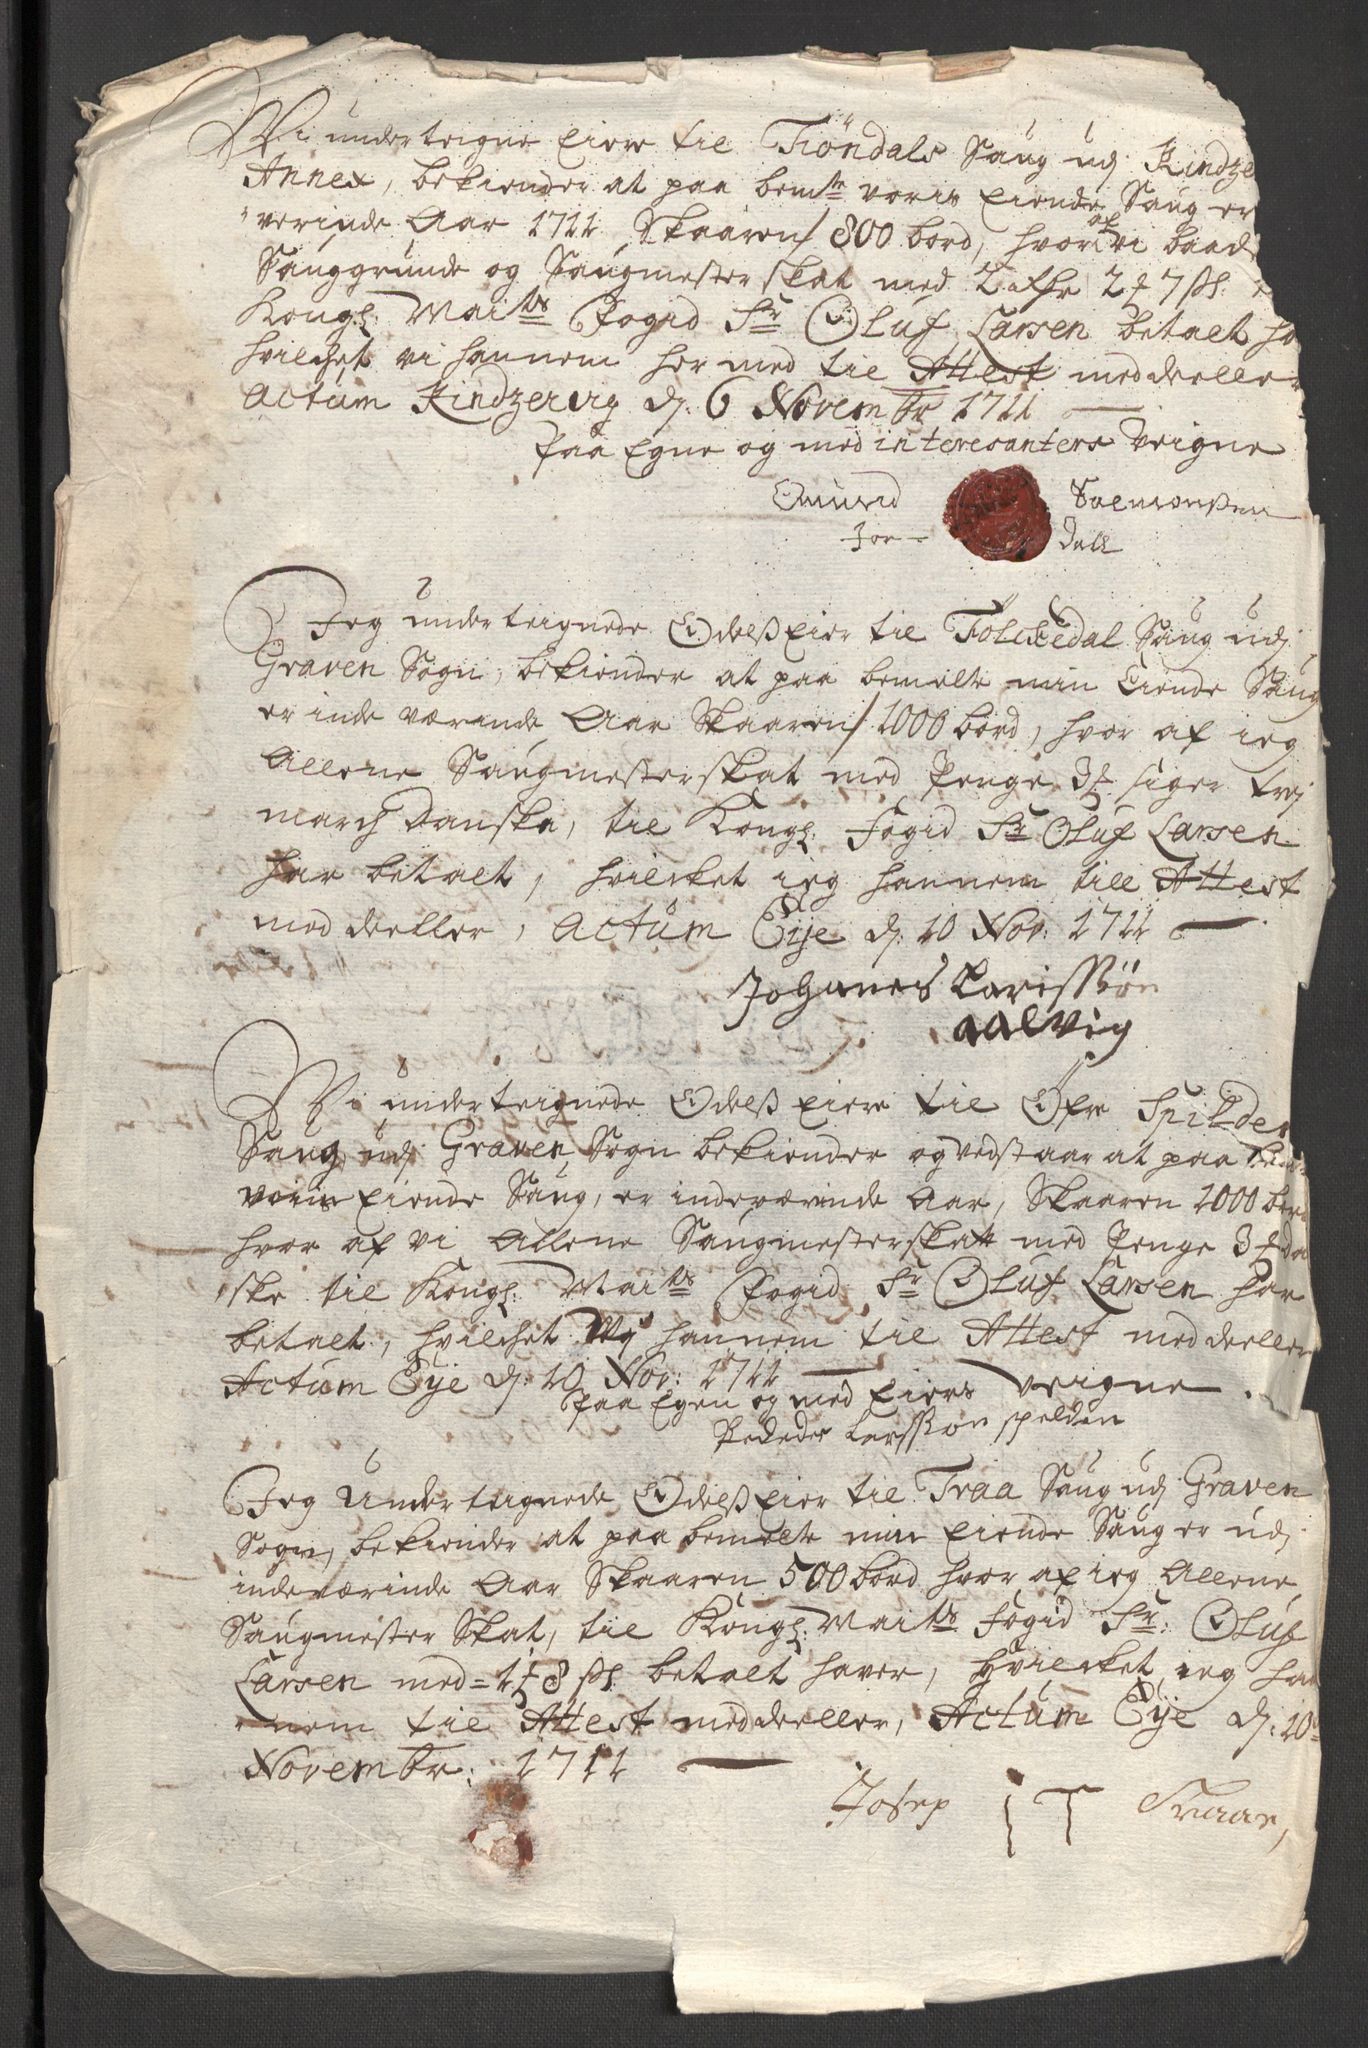 Wi undertegne Eiere til Tiöndals Saug udj Kindze
Annex, bekiender at paa bemte voris Eiende Saug er
verinde Aar 1711 Skaaren / 800 bord, hvor af vi baade
Sauggrunde og Saugmester skat med 2 rdr 2 ₰ 7 ss
Kongl: Maits Fogid Sr Oluf Larsen betalt ha
hvilchet vi hannem her med til Attest meddeeller
Actum Kindzervig d: 6 Novembr 1711
Paa Egne og med interesanters Veigne
Omund Salmonssen
Joe- dall
Jeg undertegnede Odelss Eier til Folckedal Saug udj
Graven Sogn, bekiender at paa bemelte min Eiende Saug
er inde værinde Aar Skaaren / 1000 bord, hvor af ieg
Allene Saugmesterskat med Penge 3 ₰ siger trej
march Danske, til Kongl: Fogid Sr Oluf Larsen
har betalt, hvilcket ieg hannem till Attest
meddeeller, Actum Eije d: 10 Nov: 1711
Johanes Larissøn
aalvig
Wi undertegnede Odelss Eiere til Øfre Spilden
Saug udj Graven Sogn bekiender og vedstaar at paa bem
voris Eiende Saug, er indeværinde Aar, Skaaren 1000 bord
hvor af vi Allene Saugmesterskatt med Penge 3 ₰ da
ske til Kongl: Maits Fogid Sr Oluf Larsen har
betalt, hvilchet Wj hannem til Attest meddeeller
Actum Eije d: 10 Nov: 1711
Paa Egen og med Eiers Veigne.
Pededer Larsson spelden
Jeg Undertegnede Odelss Eier til Traa Saug udj Graven
Sogn, bekiender at paa bemelte min Eiende Saug er udj
indeværinde Aar Skaaren 500 bord hvor af ieg Allene
Saugmester Skat, til Kongl: Maits Fogid Sr: Oluf
Larsen med = 1 ₰ 8 ss betalt haver, hvilcket ieg han
nem til Attest meddeeller, Actum Eije d: 10
Novembr: 1711
Josep I T Traae,